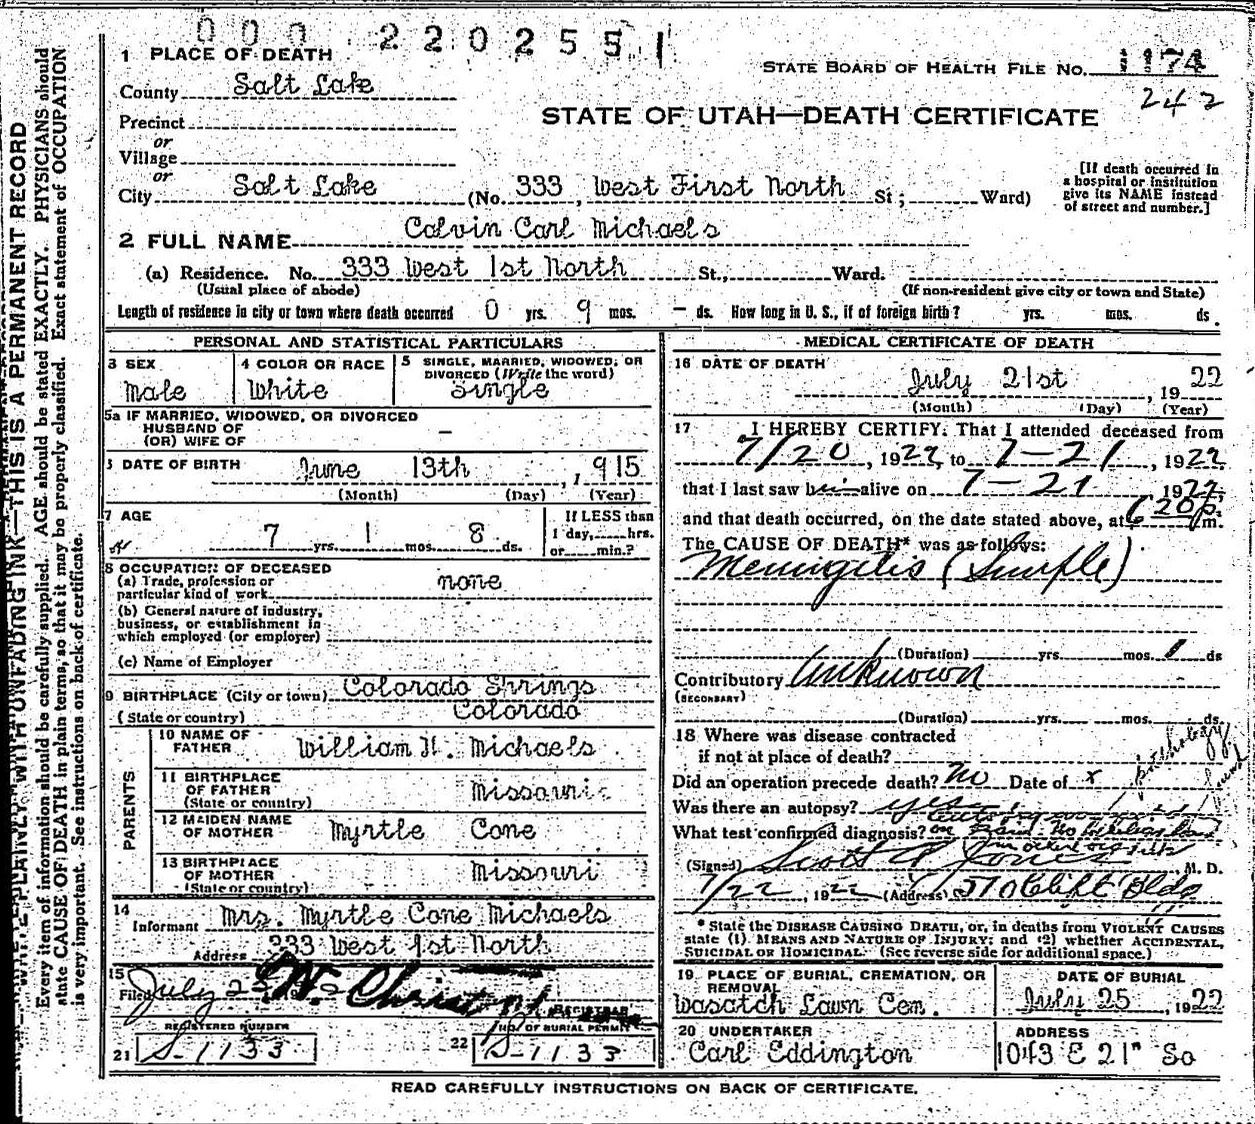 000 2202551
1 PLACE OF DEATH
STATE BOARD OF HEALTH FILE No. 1174
County Salt Lake
242
STATE OF UTAH—DEATH CERTIFICATE
Precinct
or
Village
or
City Salt Lake (No. 333, West First North St; Ward)
[If death occurred in
a hospital or institution
give its NAME instead
of street and number.]
2 FULL NAME Calvin Carl Michaels
(a) Residence. No. 333 West 1st North St., Ward.
(Usual place of abode) (If non-resident give city or town and State)
Length of residence in city or town where death occurred 0 yrs. 9 mos. — ds. How long in U. S., if of foreign birth? yrs. mos. ds.
PERSONAL AND STATISTICAL PARTICULARS
3 SEX
Male
4 COLOR OR RACE
White
5 SINGLE, MARRIED, WIDOWED, OR
DIVORCED (Write the word)
Single
5a IF MARRIED, WIDOWED, OR DIVORCED
HUSBAND OF
(OR) WIFE OF —
DATE OF BIRTH June 13th, 1915
(Month) (Day) (Year)
7 AGE
7 yrs. 1 mos. 8 ds.
If LESS than
1 day, hrs.
or min.?
8 OCCUPATION OF DECEASED
(a) Trade, profession or
particular kind of work none
(b) General nature of industry,
business, or establishment in
which employed (or employer)
(c) Name of Employer
9 BIRTHPLACE (City or town) Colorado Springs
(State or country) Colorado
PARENTS
10 NAME OF
FATHER William H. Michaels
11 BIRTHPLACE
OF FATHER
(State or country) Missouri
12 MAIDEN NAME
OF MOTHER Myrtle Cone
13 BIRTHPLACE
OF MOTHER
(State or country) Missouri
14
Informant Mrs. Myrtle Cone Michaels
Address 333 West 1st North
15
Filed July 25 W. Christ
REGISTRAR
REGISTERED NUMBER
21 S-1133
NO. OF BURIAL PERMIT
22 S-1133
MEDICAL CERTIFICATE OF DEATH
16 DATE OF DEATH
July 21st, 1922
(Month) (Day) (Year)
17 I HEREBY CERTIFY: That I attended deceased from
7/20, 1922 to 7-21, 1922
that I last saw him alive on 7-21 1922,
and that death occurred, on the date stated above, at 620 p.m.
The CAUSE OF DEATH* was as follows:
Meningitis (Simple)
(Duration) yrs. mos. 1 ds
Contributory Unknown
(SECONDARY)
(Duration) yrs. mos. ds.
18 Where was disease contracted
if not at place of death?
Did an operation precede death? No Date of x
Was there an autopsy? yes
What test confirmed diagnosis?
(Signed) Scott P Jones M. D.
7/22, 1922 (Address) 510 Clift Bldg
* State the DISEASE CAUSING DEATH, or, in deaths from VIOLENT CAUSES
state (1) MEANS AND NATURE OF INJURY; and (2) whether ACCIDENTAL,
SUICIDAL OR HOMICIDAL. (See reverse side for additional space.)
19 PLACE OF BURIAL, CREMATION, OR
REMOVAL
Wasatch Lawn Cem.
DATE OF BURIAL
July 25, 1922
20 UNDERTAKER
Carl Eddington
ADDRESS
1043 E 21" So
READ CAREFULLY INSTRUCTIONS ON BACK OF CERTIFICATE.
WRITE PLAINLY WITH UNFADING INK—THIS IS A PERMANENT RECORD
Every item of information should be carefully supplied. AGE should be stated EXACTLY. PHYSICIANS should
state CAUSE OF DEATH in plain terms, so that it may be properly classified. Exact statement of OCCUPATION
is very important. See instructions on back of certificate.